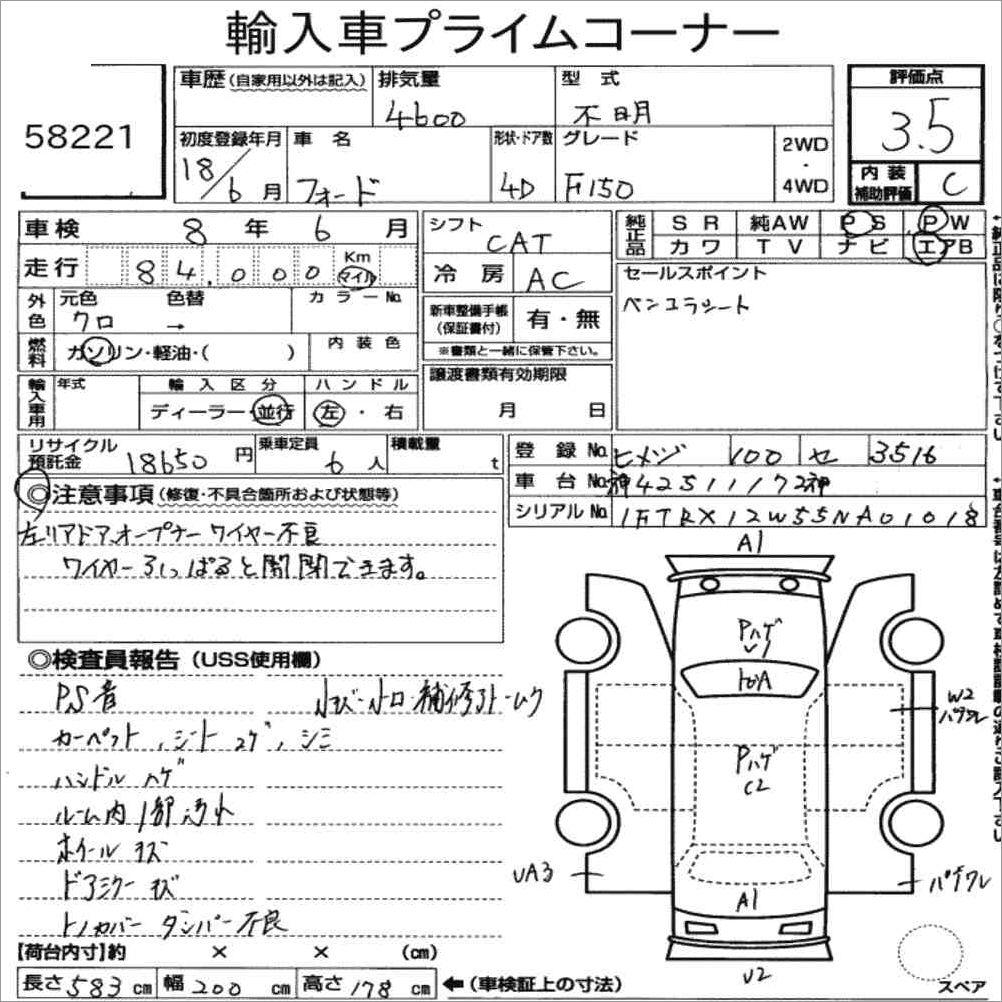 輸入車プライムコーナー
58221
車歴(自家用以外は記入) 排気量 4600 型式 不明
評価点 3.5
初度登録年月 18/6月 車名 フォード 形状・ドア数 4D グレード F150 2WD・4WD
内装補助評価 C
車検 8年 6月 シフト CAT
純正品 SR 純AW PS PW
カワ TV ナビ エアB
走行 84,000 Km マイル 冷房 AC
セールスポイント
ベンコラシート
外色 元色 クロ 色替 → カラーNo.
新車整備手帳(保証書付) 有・無
※書類と一緒に保管下さい。
燃料 ガソリン・軽油・( ) 内装色
輸入車用 年式 輸入区分 ディーラー・並行 ハンドル 左・右
譲渡書類有効期限 月 日
リサイクル預託金 18650円 乗車定員 6人 積載量 t
登録No. ヒメジ 100 セ 3516
車台No. 神42511172神
シリアルNo. 1FTRX12W55NA01018
◎注意事項(修復・不具合箇所および状態等)
左リアドア、オープナー ワイヤー不良
ワイヤー引っぱると開閉できます。
◎検査員報告(USS使用欄)
P.S音
カーペット、シート コゲ、シミ
ハンドル ハゲ
ルーム内1部汚れ
ホイール キズ
ドアミラー キズ
トノカバー ダンパー不良
A1
Pハゲ
Pハゲ
C2
W2
UA3
A1
U2
スペア
【荷台内寸】約 × × (cm)
長さ583cm 幅200cm 高さ178cm ←(車検証上の寸法)